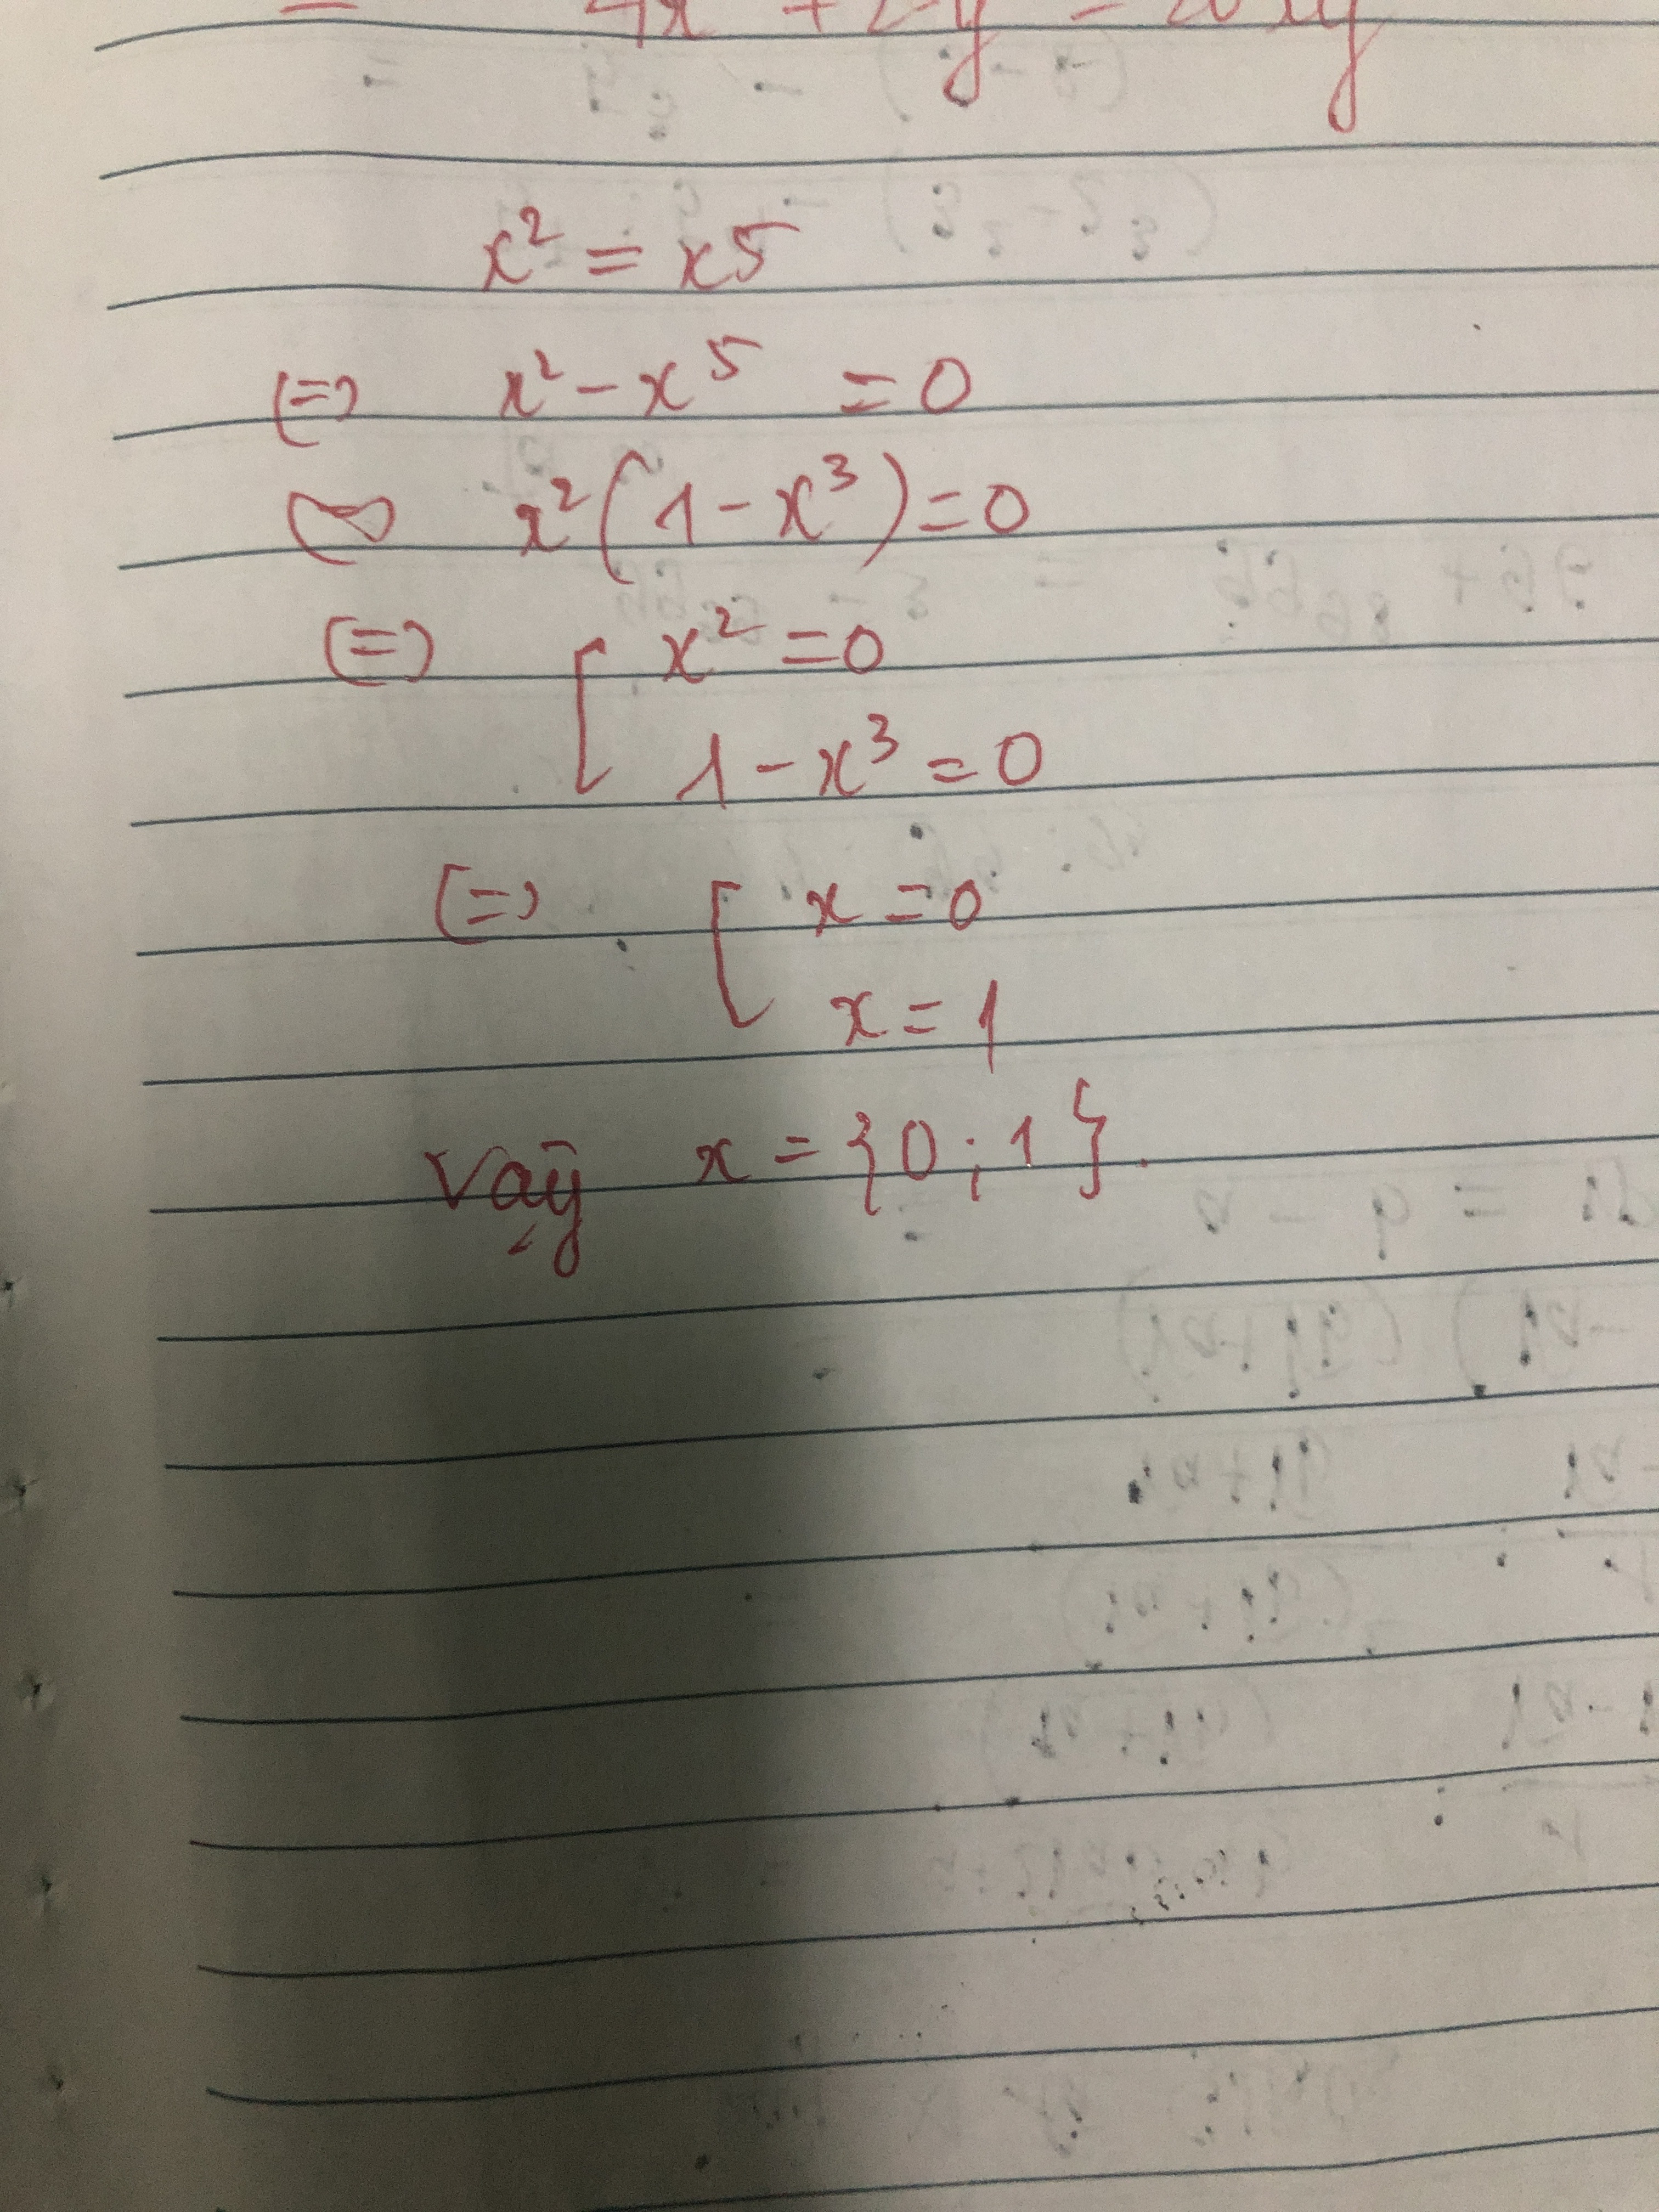 x² = x5
(=) x² - x⁵ = 0
x² (1 - x³) = 0
(=) [ x² = 0
1 - x³ = 0
(=) [ x = 0
x = 1
Vậy x = {0; 1}.